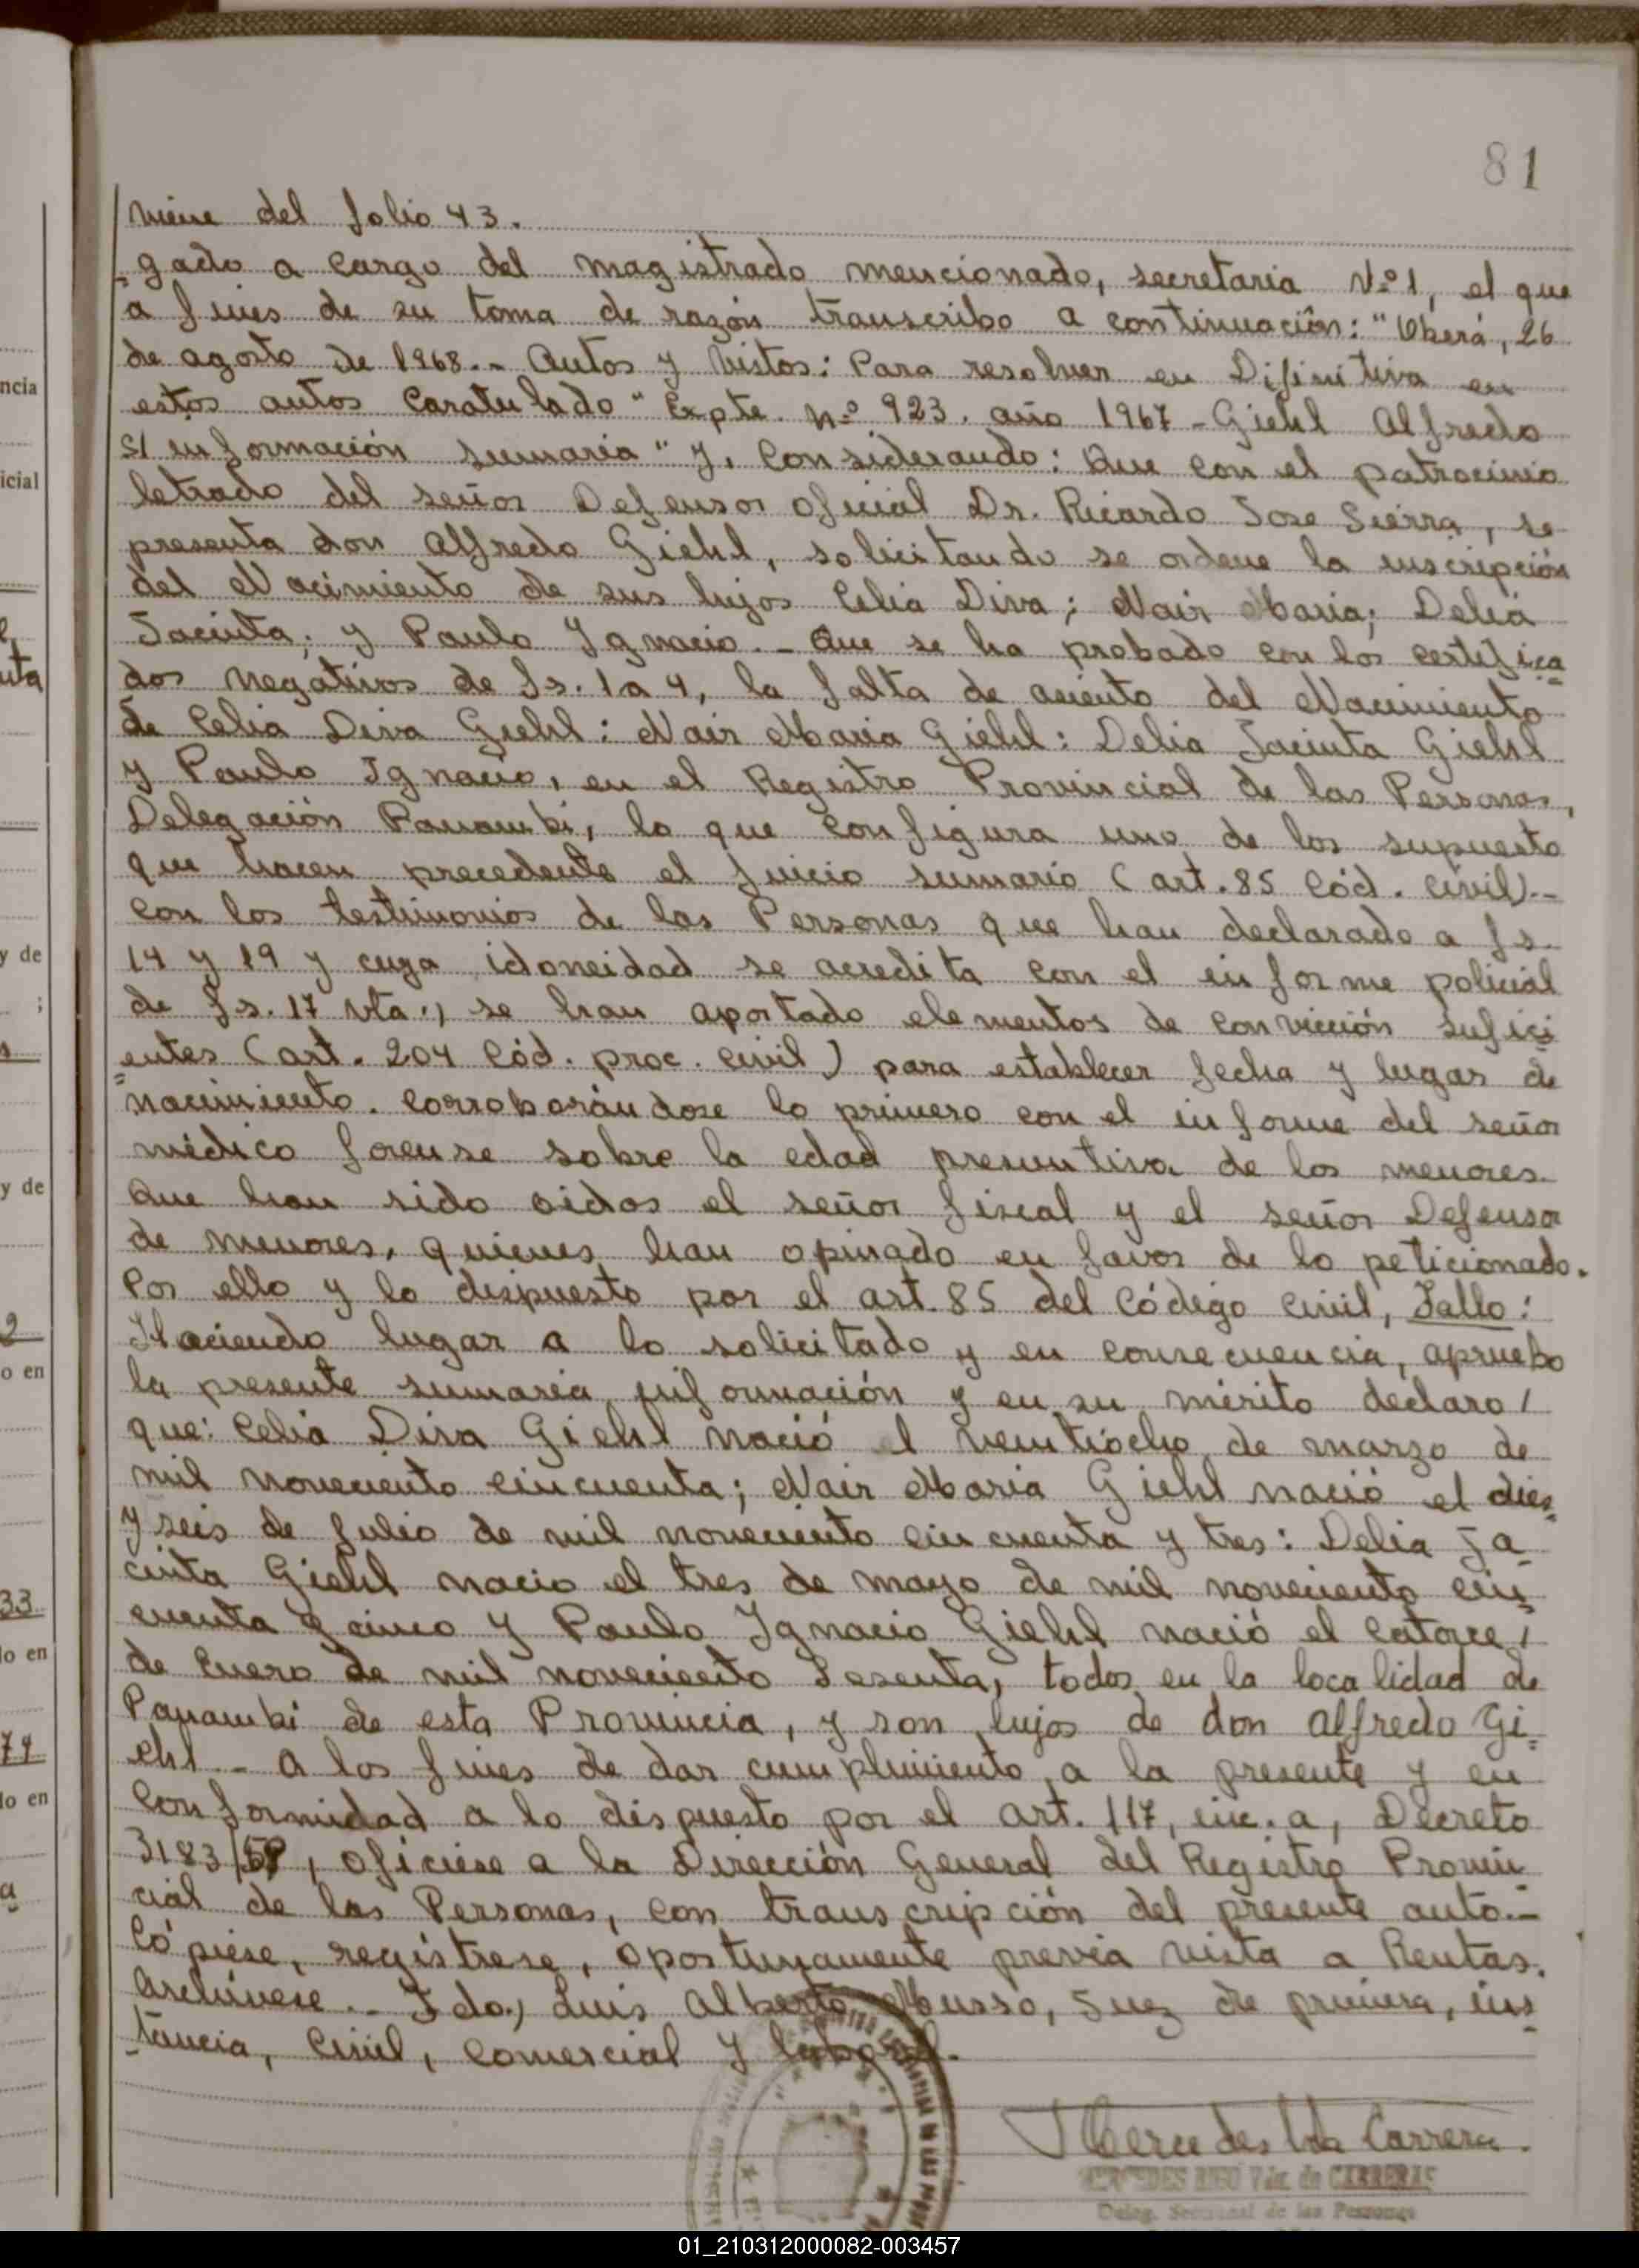 81
viene del folio 43.
gado a cargo del magistrado mencionado, secretaria Nº 1, el que
a fines de su toma de razón transcribo a continuación: "Oberá, 26
de agosto de 1968.- Autos y Vistos: Para resolver en Difinitiva en
estos autos Caratulado "Expte. nº 923. año 1967 - Giehl Alfredo
S/ información sumaria" y, Considerando: Que con el patrocinio
letrado del señor Defensor Oficial Dr. Ricardo Jose Sierra, se
presenta don Alfredo Giehl, solicitando se ordene la inscripción
del Nacimiento de sus hijos Celia Diva; Nair Maria; Delia
Jacinta; y Paulo Ignacio.- Que se ha probado con los certifica
dos negativos de fs. 1 a 4, la falta de aciento del Nacimiento
de Celia Diva Giehl: Nair Maria Giehl: Delia Jacinta Giehl
y Paulo Ignacio, en el Registro Provincial de las Personas,
Delegación Panambi, lo que configura uno de los supuesto
que hacen precedente el juicio sumario (art. 85 Cód. Civil).-
Con los testimonios de las Personas que han declarado a fs.
14 y 19 y cuya idoneidad se acredita con el informe policial
de fs. 17 vta., se han aportado elementos de convicción sufici
entes (art. 204 Cód. proc. civil) para establecer fecha y lugar de
nacimiento. Corroborándose lo primero con el informe del señor
médico forense sobre la edad presuntiva de los menores.
Que han sido oidos el señor fiscal y el señor Defensor
de menores, quienes han opinado en favor de lo peticionado.
Por ello y lo dispuesto por el art. 85 del Código Civil, Fallo:
Haciendo lugar a lo solicitado y en consecuencia, apruebo
la presente sumaria información y en su mérito declaro/
que: Celia Diva Giehl nació el veintiocho de marzo de
mil noveciento cincuenta; Nair Maria Giehl nació el diez
y seis de Julio de mil noveciento cincuenta y tres: Delia Ja
cinta Giehl nacio el tres de mayo de mil noveciento cin
cuenta y cinco y Paulo Ignacio Giehl nació el catorce/
de Enero de mil noveciento Sesenta, todos en la localidad de
Panambi de esta Provincia, y son hijos de don Alfredo Gi
ehl.- A los fines de dar cumplimiento a la presente y en
Conformidad a lo dispuesto por el art. 117, inc. a, Decreto
3183/58, oficiese a la Dirección General del Registro Provin
cial de las Personas, con transcripción del presente auto.-
Cópiese, regístrese, oportunamente previa vista a Rentas.
Archívese.- Fdo.) Luis Alberto Musso, Juez de primera, ins
tancia, Civil, Comercial y laboral.
Mercedes Vda Carrera.
Vda. de CARRERAS
Deleg. Seccional de las Personas
ncia
icial
uta
y de
;
y de
2
o en
33
do en
74
do en
a
01_210312000082-003457